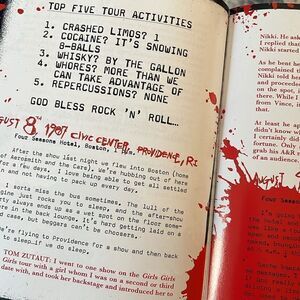 TOP FIVE TOUR ACTIVITIES
1. CRASHED LIMOS? 1
2. COCAINE? IT'S SNOWING
8-BALLS
3. WHISKY? BY THE GALLON
4. WHORES? MORE THAN WE
CAN TAKE ADVANTAGE OF
5. REPERCUSSIONS? NONE
GOD BLESS ROCK 'N' ROLL…
AUGUST 8, 1987 CIVIC CENTER, PROVIDENCE, RI
Four Seasons Hotel, Boston,
After the show last night we flew into Boston (home
of Aerosmith and the Cars). We're hubbing out of here
for a few days. I love being able to get all settled
in and not having to pack up every day.
I sorta miss the bus sometimes. The lull of the
road rocks you to sleep, and the after-show
party always ends up as a wet spot on the floor somewhere
in the back lounge, it's hard getting laid on a
but beggars can't be choosers.
We're flying to Providence for a show and then back
to sleep…if we do sleep.
TOM ZUTAUT: I went to one show on the Girls Girls
Girls tour with a girl whom I was on a second or third
date with, and took her backstage and introduced her to
Nikki. He ask
I replied that
Nikki started
As he bent he
complained
Nikki told h
and proceede
on the spot,
there. While
from Vince,
that.
At least he a
didn't know
I certainly di
fortable. Only
grab his A&R
of an audience
AUGUST